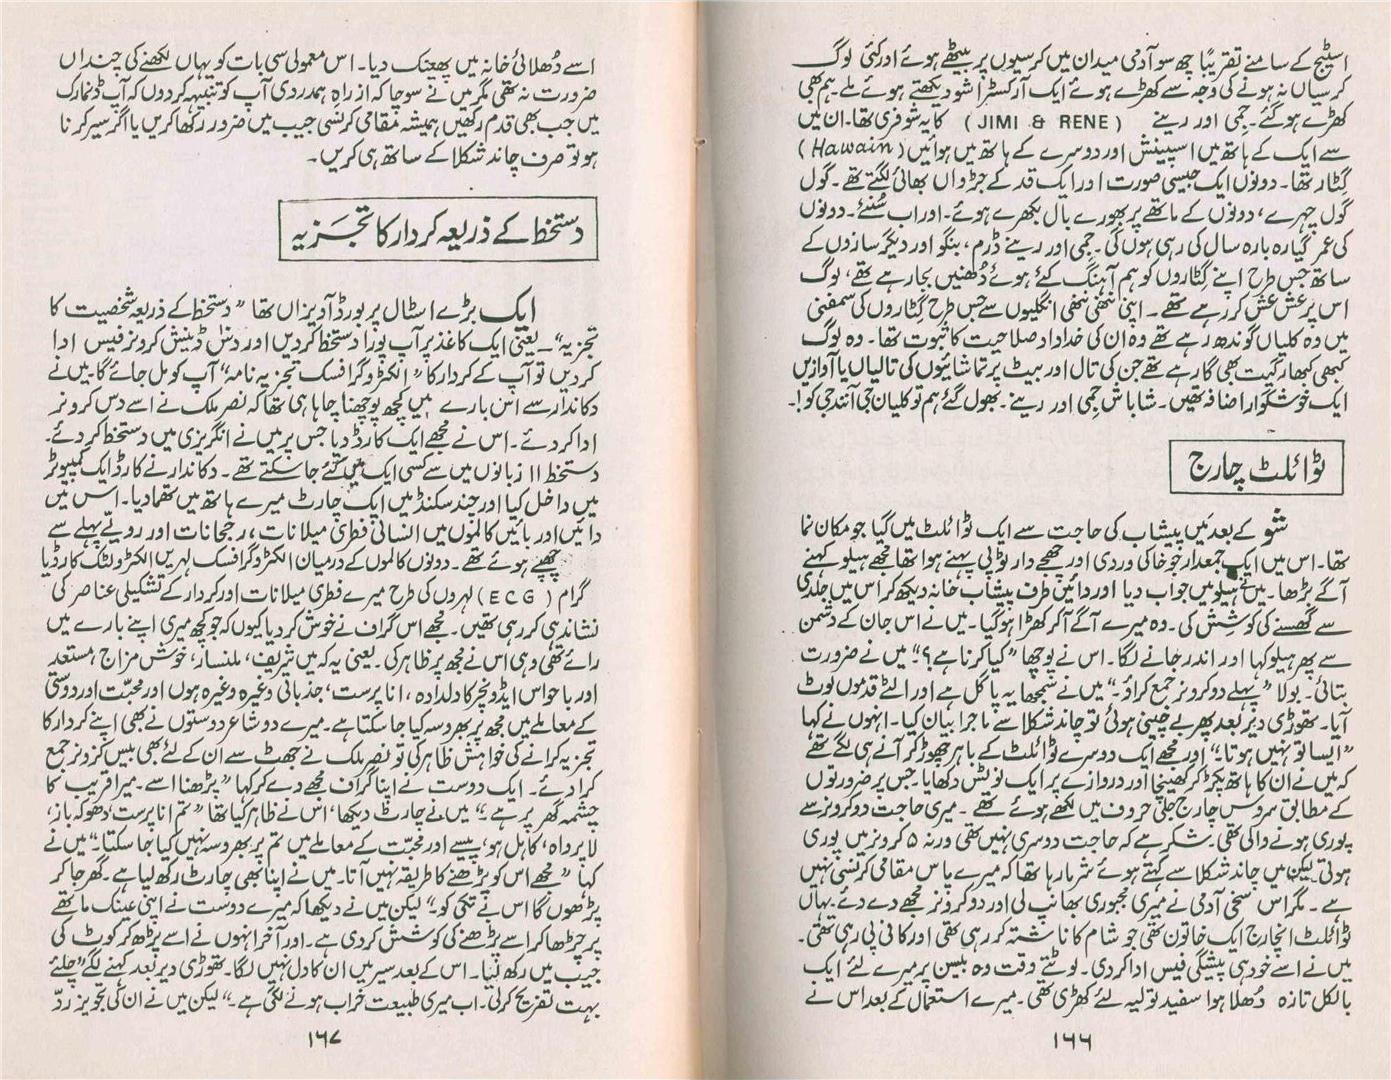 اسٹیج کے سامنے تقریباً چھ سو آدمی میدان میں کرسیوں پر بیٹھے ہوئے اور کئی لوگ
کرسیاں نہ ہونے کی وجہ سے کھڑے ہوئے ایک آرکسٹرا شو دیکھتے ہوئے ملے۔ ہم بھی
کھڑے ہو گئے۔ جمی اور رینے (JIMI & RENE) کا یہ شو فری تھا۔ ان میں
سے ایک کے ہاتھ میں اسپینش اور دوسرے کے ہاتھ میں ہوائین (Hawain)
گٹار تھا۔ دونوں ایک جیسی صورت اور ایک قد کے جڑواں بھائی لگتے تھے۔ گول
گول چہرے، دونوں کے ماتھے پر بھورے بال بکھرے ہوئے۔ اور اب سُنئے۔ دونوں
کی عمر گیارہ بارہ سال کی رہی ہوں گی۔ جمی اور رینے ڈرم، بنگو اور دیگر سازوں کے
ساتھ جس طرح اپنے گٹاروں کو ہم آہنگ کئے ہوئے دُھنیں بجا رہے تھے، لوگ
اس پر عش عش کر رہے تھے۔ اپنی ننھی ننھی انگلیوں سے جس طرح گٹاروں کی سمفنی
میں وہ کلیاں گوندھ رہے تھے وہ ان کی خداداد صلاحیت کا ثبوت تھا۔ وہ لوگ
کبھی کبھار گیت بھی گا رہے تھے جن کی تال اور بیٹ پر تماشائیوں کی تالیاں یا آوازیں
ایک خوشگوار اضافہ تھیں۔ شاباش جمی اور رینے۔ بھول گئے ہم تو کلیان جی آنند جی کو!۔
ٹوائلٹ چارج
شو کے بعد میں پیشاب کی حاجت سے ایک ٹوائلٹ میں گیا جو مکان نما
تھا۔ اس میں ایک جمعدار جو خاکی وردی اور چھجے دار ٹوپی پہنے ہوا تھا مجھے ہیلو کہنے
آگے بڑھا۔ میں نے ہیلو میں جواب دیا اور دائیں طرف پیشاب خانہ دیکھ کر اس میں جلدی
سے گھسنے کی کوشش کی۔ وہ میرے آگے آ کر کھڑا ہو گیا۔ میں نے اس جان کے دشمن
سے پھر ہیلو کہا اور اندر جانے لگا۔ اس نے پوچھا "کیا کرنا ہے؟"۔ میں نے ضرورت
بتائی۔ بولا "پہلے دو کرونر جمع کراؤ۔" میں نے سمجھا یہ پاگل ہے اور الٹے قدموں لوٹ
آیا۔ تھوڑی دیر بعد پھر بے چینی ہوئی تو چاند شکلا سے ماجرا بیان کیا۔ انہوں نے کہا
"ایسا تو نہیں ہوتا۔" اور مجھے ایک دوسرے ٹوائلٹ کے باہر چھوڑ کر آنے ہی لگے تھے
کہ میں نے ان کا ہاتھ پکڑ کر کھینچا اور دروازے پر ایک نوٹس دکھایا۔ جس پر ضرورتوں
کے مطابق سروس چارج جلی حروف میں لکھے ہوئے تھے۔ میری حاجت دو کرونر سے
پوری ہونے والی تھی۔ شکر ہے کہ حاجت دوسری نہیں تھی ورنہ ۵ کرونر میں پوری
ہوتی۔ لیکن میں چاند شکلا سے کہتے ہوئے شرما رہا تھا کہ میرے پاس مقامی کرنسی نہیں
ہے۔ مگر اس سخی آدمی نے میری مجبوری بھانپ لی اور دو کرونر مجھے دے دئے۔ یہاں
ٹوائلٹ انچارج ایک خاتون تھی جو شام کا ناشتہ کر رہی تھی اور کافی پی رہی تھی۔
میں نے اسے خود ہی پیشگی فیس ادا کر دی۔ لوٹتے وقت وہ بیسن پر میرے لئے ایک
بالکل تازہ دُھلا ہوا سفید تولیہ لئے کھڑی تھی۔ میرے استعمال کے بعد اس نے
۱۶۶
اسے دُھلائی خانہ میں پھینک دیا۔ اس معمولی سی بات کو یہاں لکھنے کی چنداں
ضرورت نہ تھی مگر میں نے سوچا کہ از راہِ ہمدردی آپ کو تنبیہہ کر دوں کہ آپ ڈنمارک
میں جب بھی قدم رکھیں ہمیشہ مقامی کرنسی جیب میں ضرور رکھا کریں یا اگر سیر کرنا
ہو تو صرف چاند شکلا کے ساتھ ہی کریں۔
دستخط کے ذریعہ کردار کا تجزیہ
ایک بڑے اسٹال پر بورڈ آویزاں تھا "دستخط کے ذریعہ شخصیت کا
تجزیہ"۔ یعنی ایک کاغذ پر آپ پورا دستخط کر دیں اور دس ڈینش کرونر فیس ادا
کر دیں تو آپ کے کردار کا "الکٹروگرافسک تجزیہ نامہ" آپ کو مل جائے گا۔ میں نے
دکاندار سے اس بارے میں کچھ پوچھنا چاہا ہی تھا کہ نصر ملک نے اسے دس کرونر
ادا کر دئے۔ اس نے مجھے ایک کارڈ دیا جس پر میں نے انگریزی میں دستخط کر دئے۔
دستخط ۱۱ زبانوں میں سے کسی ایک میں کئے جا سکتے تھے۔ دکاندار نے کارڈ ایک کمپیوٹر
میں داخل کیا اور چند سکنڈ میں ایک چارٹ میرے ہاتھ میں تھما دیا۔ اس میں
دائیں اور بائیں کالموں میں انسانی فطری میلانات، رجحانات اور رویے پہلے سے
چھپے ہوئے تھے۔ دونوں کالموں کے درمیان الکٹروگرافسک لہریں الکٹرولٹک کارڈیا
گرام (ECG) لہروں کی طرح میرے فطری میلانات اور کردار کے تشکیلی عناصر کی
نشاندہی کر رہی تھیں۔ مجھے اس گراف نے خوش کر دیا کیوں کہ جو کچھ میری اپنے بارے میں
رائے تھی وہی اس نے مجھ پر ظاہر کی۔ یعنی یہ کہ میں شریف، ملنسار، خوش مزاج، مستعد
اور باحواس ایڈونچر کا دلدادہ، انا پرست، جذباتی وغیرہ وغیرہ ہوں اور محبت اور دوستی
کے معاملے میں مجھ پر بھروسہ کیا جا سکتا ہے۔ میرے دو شاعر دوستوں نے بھی اپنے کردار کا
تجزیہ کرانے کی خواہش ظاہر کی تو نصر ملک نے جھٹ سے ان کے لئے بھی بیس کرونر جمع
کرا دئے۔ ایک دوست نے اپنا گراف مجھے دے کر کہا "پڑھنا اسے۔ میرا قریب کا
چشمہ گھر پر ہے۔" میں نے چارٹ دیکھا، اس نے ظاہر کیا تھا "تم انا پرست، دھوکہ باز،
لاپرواہ، کاہل ہو، پیسے اور محبت کے معاملے میں تم پر بھروسہ نہیں کیا جا سکتا۔" میں نے
کہا "مجھے اس کو پڑھنے کا طریقہ نہیں آتا۔ میں نے اپنا بھی چارٹ رکھ لیا ہے۔ گھر جا کر
پڑھوں گا اس بے تکی کو۔" لیکن میں نے دیکھا کہ میرے دوست نے اپنی عینک ماتھے
پر چڑھا کر اسے پڑھنے کی کوشش کر دی ہے۔ اور آخر انہوں نے اسے پڑھ کر کوٹ کی
جیب میں رکھ لیا۔ اس کے بعد سیر میں ان کا دل نہیں لگا۔ تھوڑی دیر بعد کہنے لگے "چلئے
بہت تفریح کر لی۔ اب میری طبیعت خراب ہونے لگی ہے۔" لیکن میں نے ان کی تجویز ردّ
۱۶۷